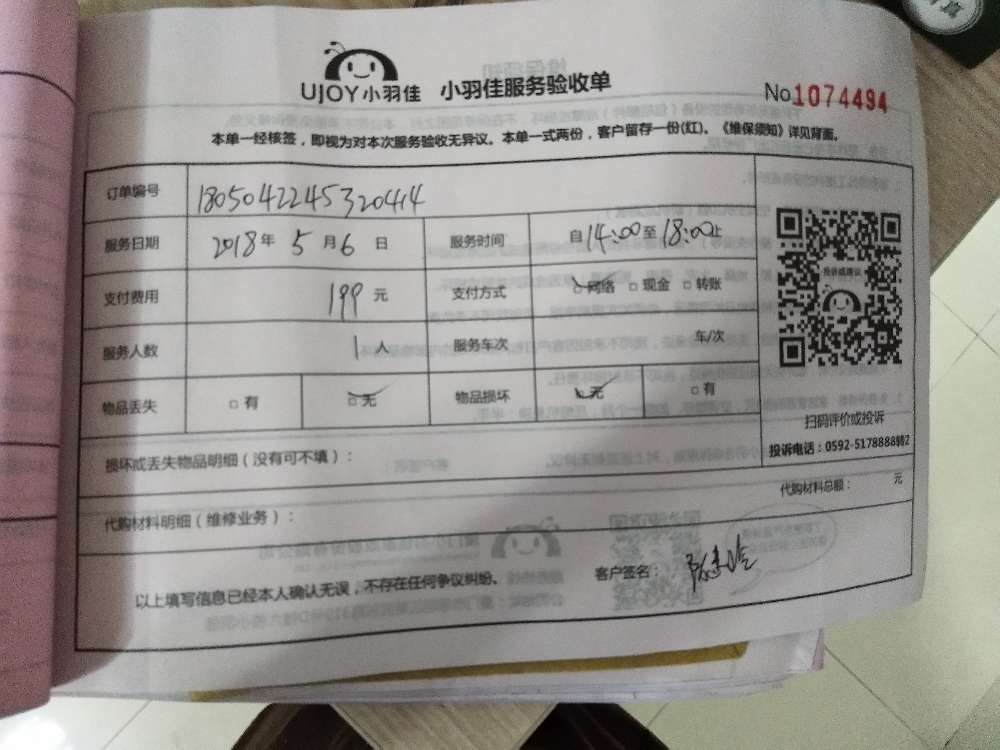 UJOY小羽佳 小羽佳服务验收单 No1074494
本单一经核签，即视为对本次服务验收无异议。本单一式两份，客户留存一份(红)。《维保须知》详见背面。
订单编号 180504224532041​4
服务日期 2018年 5 月 6 日 服务时间 自14:00至18:00止
支付费用 199 元 支付方式 □网络 □现金 □转账
服务人数 1 人 服务车次 车/次
物品丢失 □有 □无 物品损坏 □无 □有
投诉或建议
扫码评价或投诉
投诉电话：0592-5178888转2
损坏或丢失物品明细（没有可不填）：
代购材料总额： 元
代购材料明细（维修业务）：
以上填写信息已经本人确认无误，不存在任何争议纠纷。 客户签名：